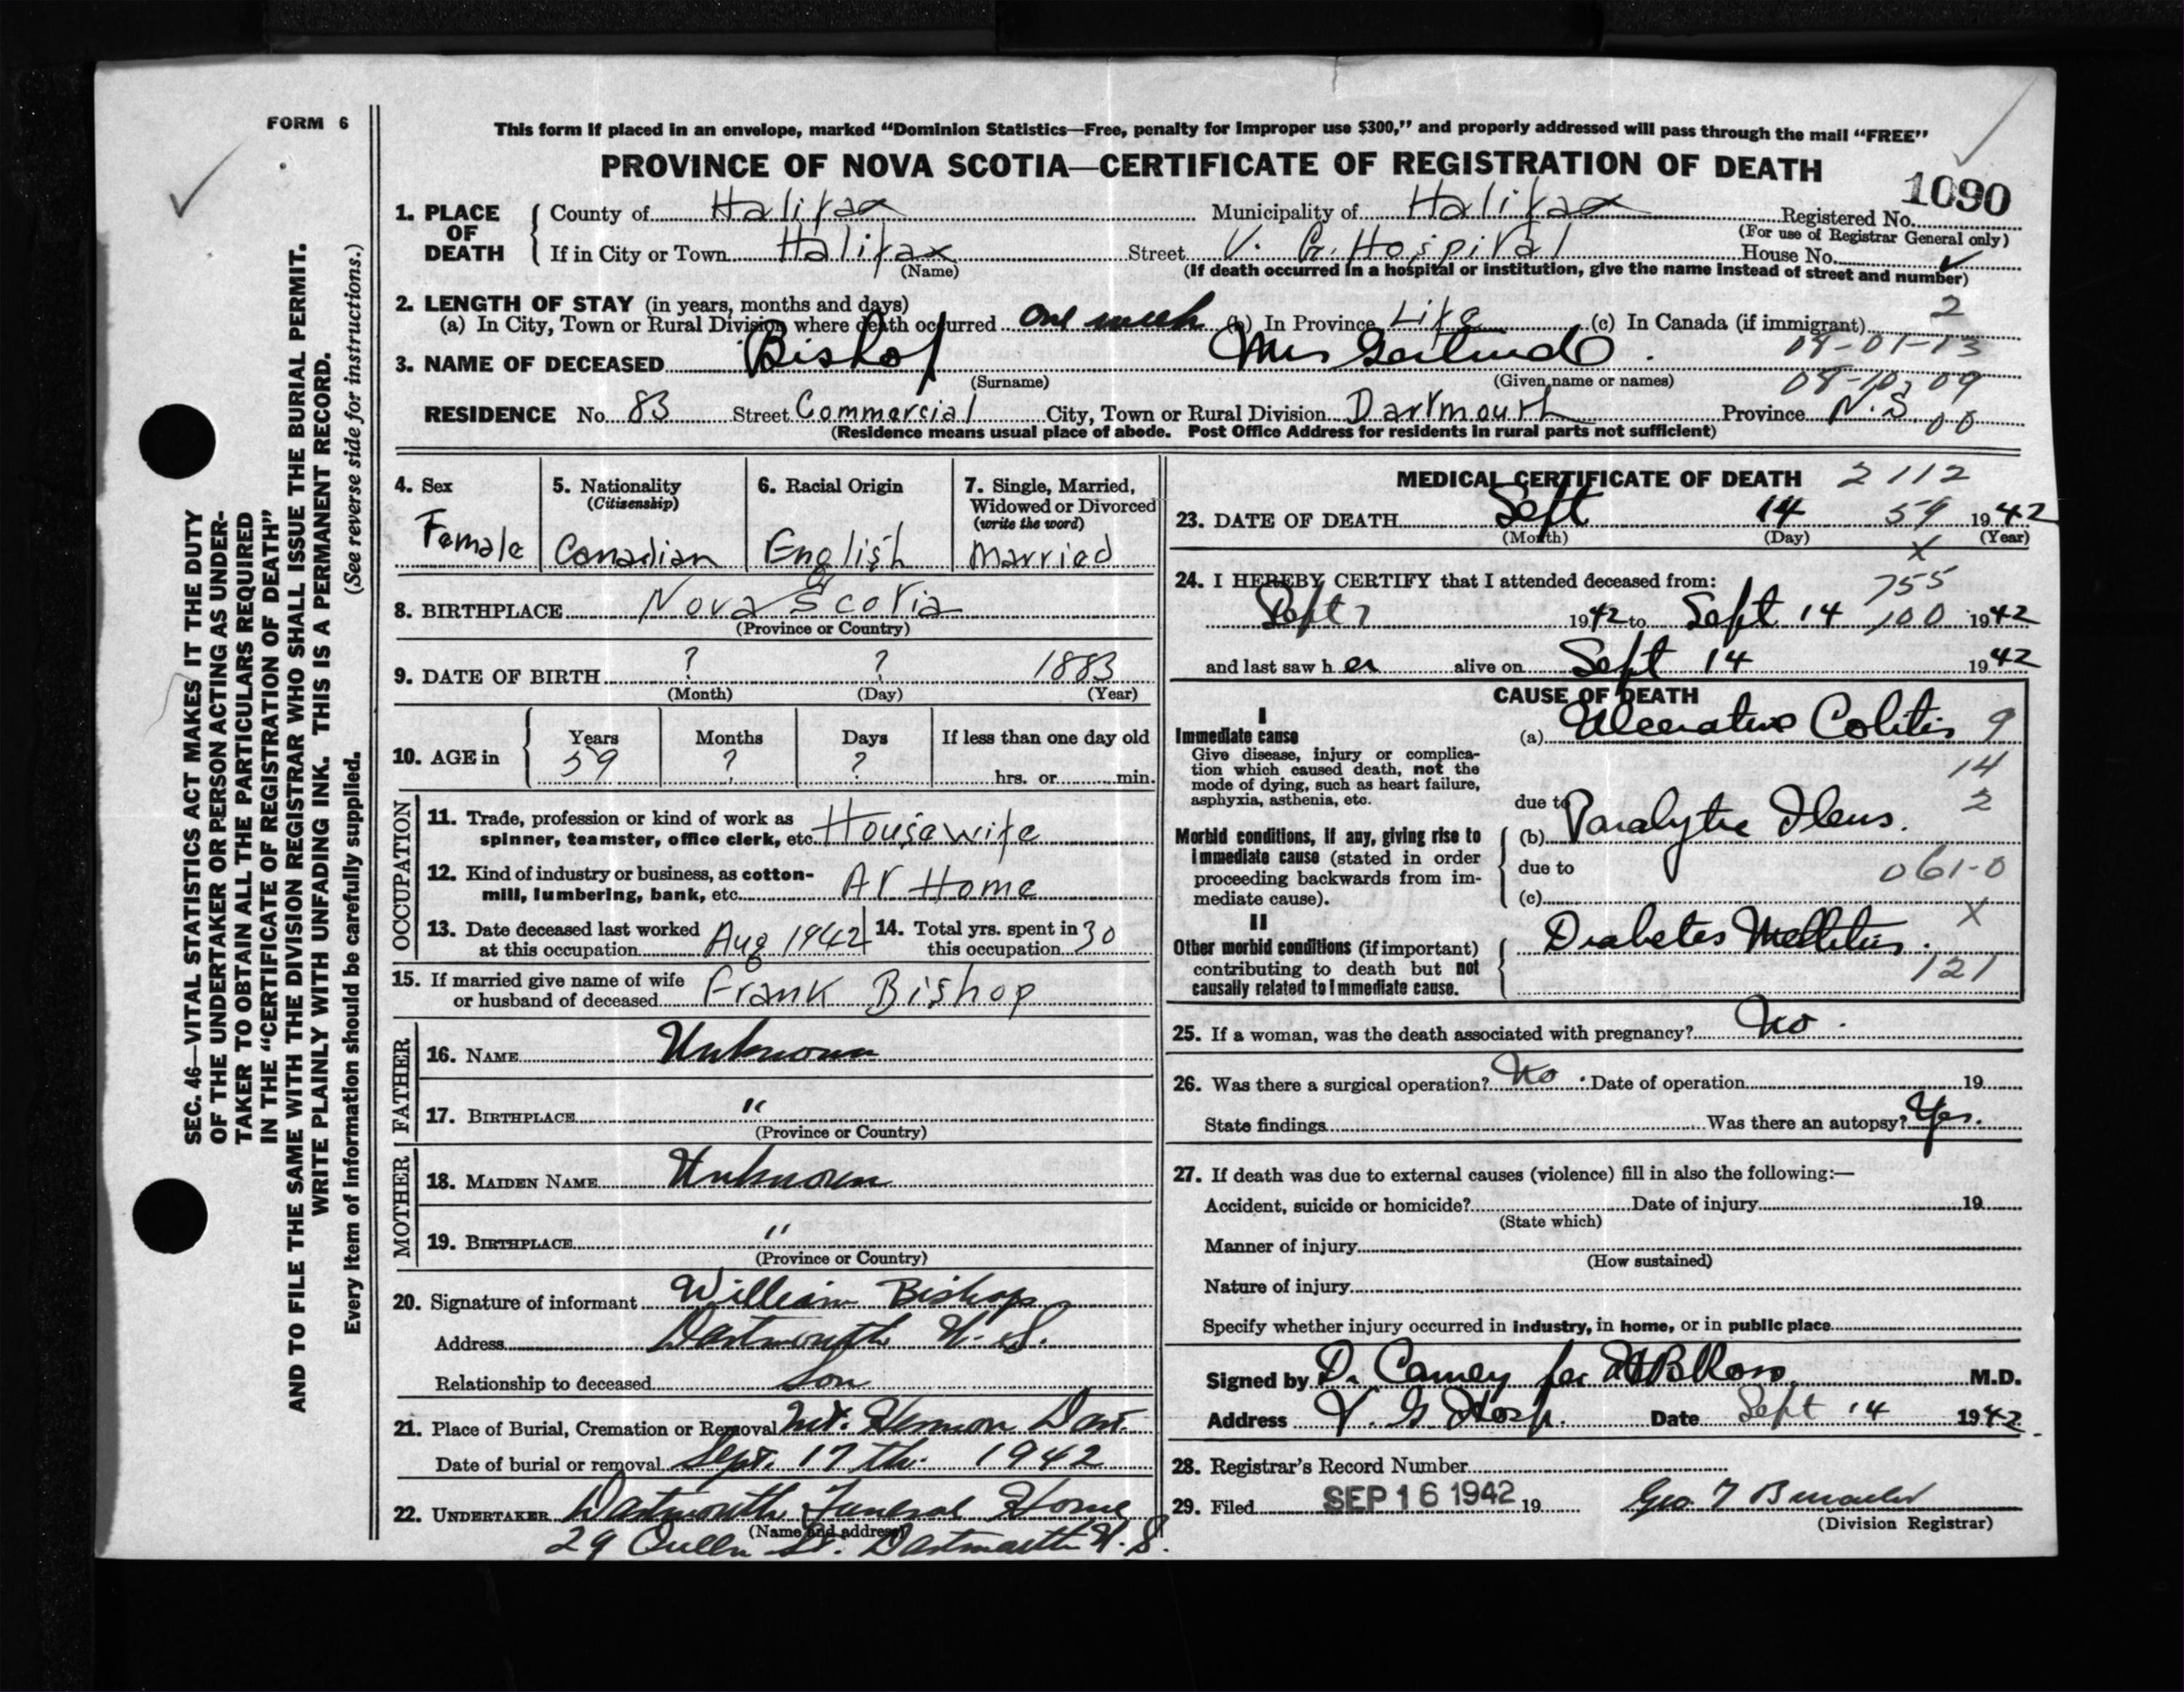 FORM 6
This form if placed in an envelope, marked “Dominion Statistics—Free, penalty for improper use $300,” and properly addressed will pass through the mail “FREE”
PROVINCE OF NOVA SCOTIA—CERTIFICATE OF REGISTRATION OF DEATH
1090
1. PLACE OF DEATH { County of Halifax Municipality of Halifax Registered No.
(For use of Registrar General only)
If in City or Town Halifax Street V. G. Hospital House No.
(Name) (If death occurred in a hospital or institution, give the name instead of street and number)
2. LENGTH OF STAY (in years, months and days) 2
(a) In City, Town or Rural Division where death occurred one week (b) In Province Life (c) In Canada (if immigrant)
08-01-13
3. NAME OF DECEASED Bishop Mrs Gertrude .
(Surname) (Given name or names) 08-10, 09
RESIDENCE No. 83 Street Commercial City, Town or Rural Division Dartmouth Province N.S. 00
(Residence means usual place of abode. Post Office Address for residents in rural parts not sufficient)
4. Sex Female
5. Nationality (Citizenship) Canadian
6. Racial Origin English
7. Single, Married, Widowed or Divorced (write the word) Married
8. BIRTHPLACE Nova Scotia
(Province or Country)
9. DATE OF BIRTH ? ? 1883
(Month) (Day) (Year)
10. AGE in { Years Months Days If less than one day old
59 ? ? hrs. or min.
OCCUPATION
11. Trade, profession or kind of work as
spinner, teamster, office clerk, etc. Housewife
12. Kind of industry or business, as cotton-
mill, lumbering, bank, etc. At Home
13. Date deceased last worked
at this occupation Aug 1942
14. Total yrs. spent in
this occupation 30
15. If married give name of wife
or husband of deceased Frank Bishop
FATHER
16. NAME Unknown
17. BIRTHPLACE "
(Province or Country)
MOTHER
18. MAIDEN NAME Unknown
19. BIRTHPLACE "
(Province or Country)
20. Signature of informant William Bishop
Address Dartmouth N. S.
Relationship to deceased Son
21. Place of Burial, Cremation or Removal Mt. Hermon Dart.
Date of burial or removal Sept. 17 th. 1942
22. UNDERTAKER Dartmouth Funeral Home
(Name and address)
29 Queen St. Dartmouth N. S.
MEDICAL CERTIFICATE OF DEATH 2112
23. DATE OF DEATH Sept 14 59 1942
(Month) (Day) (Year)
X
24. I HEREBY CERTIFY that I attended deceased from: 755
Sept 7 1942 to Sept 14 100 1942
and last saw h er alive on Sept 14 1942
CAUSE OF DEATH
I
Immediate cause (a) Ulcerative Colitis 9
Give disease, injury or complica-
tion which caused death, not the 14
mode of dying, such as heart failure,
asphyxia, asthenia, etc. due to 2
Morbid conditions, if any, giving rise to (b) Paralytic Ileus.
immediate cause (stated in order
proceeding backwards from im- due to 061-0
mediate cause). (c)
II X
Other morbid conditions (if important) Diabetes Mellitus.
contributing to death but not 121
causally related to immediate cause.
25. If a woman, was the death associated with pregnancy? No.
26. Was there a surgical operation? No. Date of operation 19
State findings Was there an autopsy? Yes.
27. If death was due to external causes (violence) fill in also the following:—
Accident, suicide or homicide? Date of injury 19
(State which)
Manner of injury
(How sustained)
Nature of injury
Specify whether injury occurred in industry, in home, or in public place
Signed by for Ross M.D.
Address V. G. Hosp. Date Sept 14 1942
28. Registrar's Record Number
29. Filed SEP 16 1942 19 Geo.
(Division Registrar)
SEC. 46—VITAL STATISTICS ACT MAKES IT THE DUTY
OF THE UNDERTAKER OR PERSON ACTING AS UNDER-
TAKER TO OBTAIN ALL THE PARTICULARS REQUIRED
IN THE “CERTIFICATE OF REGISTRATION OF DEATH”
AND TO FILE THE SAME WITH THE DIVISION REGISTRAR WHO SHALL ISSUE THE BURIAL PERMIT.
WRITE PLAINLY WITH UNFADING INK. THIS IS A PERMANENT RECORD.
Every item of information should be carefully supplied. (See reverse side for instructions.)